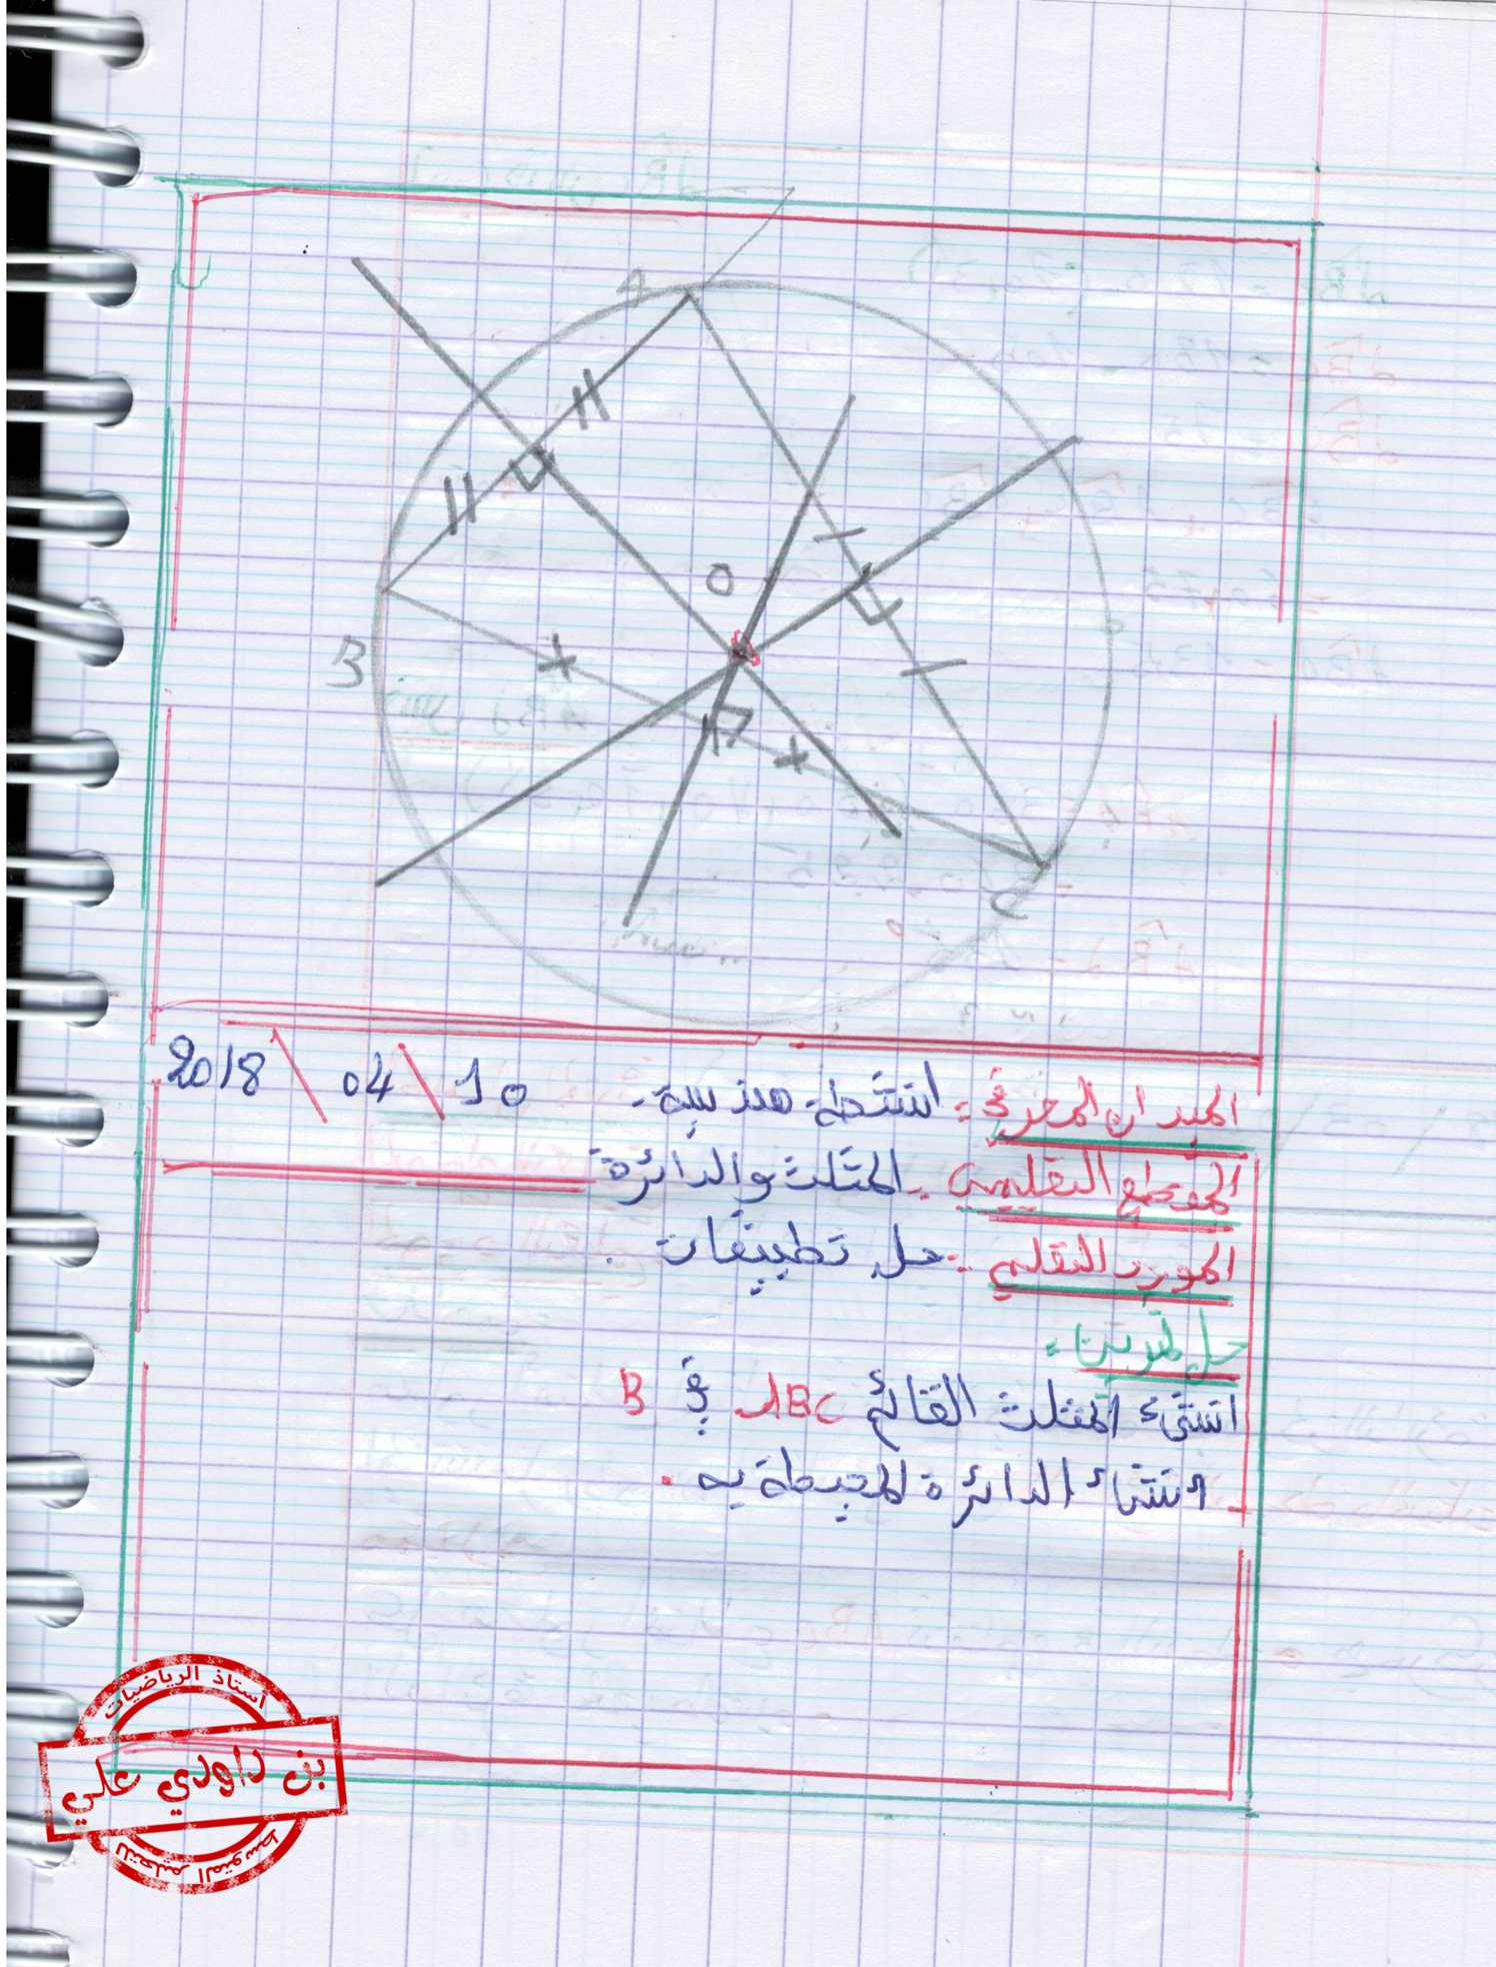 A
O
B
C
2018 \ 04 \ 10
الميدان المعرفي : انشطة هندسية .
المقطع التعليمي : المثلث والدائرة
المورد التعلمي : حل تطبيقات .
حل تمرين :
انشئ المثلث القائم ABC في B
انشاء الدائرة المحيطة به .
أستاذ الرياضيات
بن داودي علي
للتعليم المتوسط